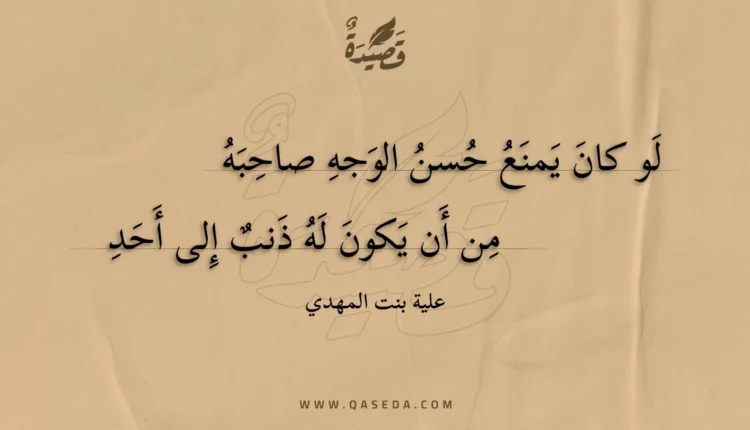 قَصِيدَةٌ
لَو كانَ يَمنَعُ حُسنُ الوَجهِ صاحِبَهُ
مِن أَن يَكونَ لَهُ ذَنبٌ إِلى أَحَدِ
علية بنت المهدي
WWW.QASEDA.COM